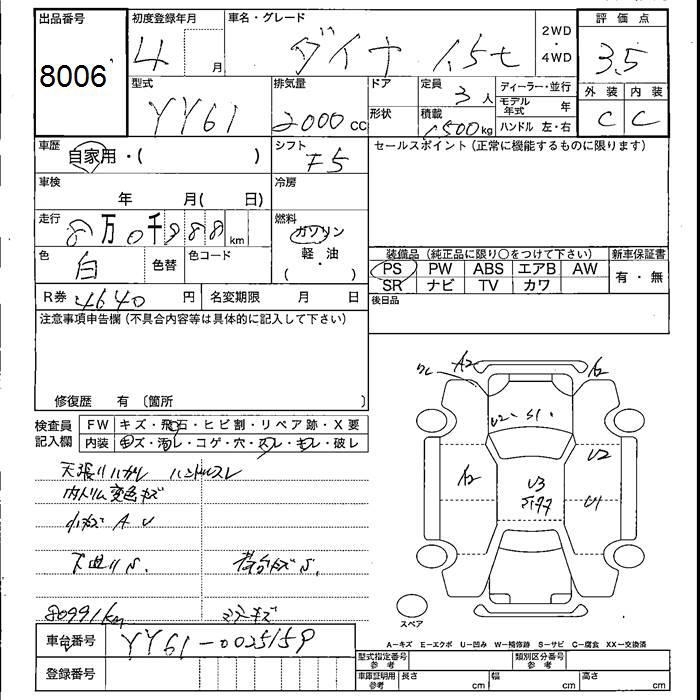 出品番号
8006
初度登録年月
4
月
車名・グレード
ダイナ 1.5t
2WD
・
4WD
評価点
3.5
外装
内装
C
C
型式
YY61
排気量
2000
cc
ドア
形状
定員
3
人
積載
1500
kg
ディーラー・並行
モデル年式
年
ハンドル 左・右
車歴
自家用・( )
シフト
F5
セールスポイント(正常に機能するものに限ります)
車検
年 月( 日)
冷房
走行
8万0千988
km
燃料
ガソリン
軽・油
( ・ )
色
白
色替
色コード
装備品(純正品に限り〇をつけて下さい)
新車保証書
PS PW ABS エアB AW
有・無
SR ナビ TV カワ
R券
4640
円
名変期限 月 日
後日品
注意事項申告欄(不具合内容等は具体的に記入して下さい)
修復歴 有 〔箇所 〕
検査員
記入欄
FW
キズ・飛石・ヒビ割・リペア跡・X要
内装
キズ・汚レ・コゲ・穴・スレ・キレ・破レ
天張リハガレ ハンドルスレ
内トリム変色キズ
小キズ A U
下曲リS.
80991km
A2
A2
U2
S1
A2
U2
U3
U1
スペア
A-キズ E-エクボ U-凹み W-補修跡 S-サビ C-腐食 XX-交換済
車台番号
YY61-0025159
登録番号
型式指定番号
参考
類別区分番号
参考
車庫証明用
参考
長さ
cm
幅
cm
高さ
cm